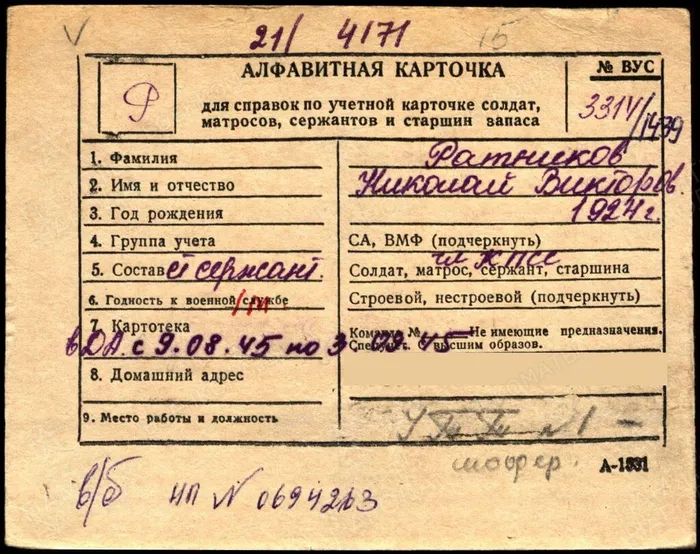 21/ 4171 15
АЛФАВИТНАЯ КАРТОЧКА
№ ВУС
Р
для справок по учетной карточке солдат,
матросов, сержантов и старшин запаса
1. Фамилия Ратников
2. Имя и отчество Николай Викторов.
3. Год рождения 1924 г.
4. Группа учета СА, ВМФ (подчеркнуть)
чл КПСС
5. Состав ст сержант. Солдат, матрос, сержант, старшина
6. Годность к военной службе Строевой, нестроевой (подчеркнуть)
7. Картотека Команда № Не имеющие предназначения.
Спецучет. С высшим образов.
в ДА с 9.08.45 по 3 09 45
8. Домашний адрес
9. Место работы и должность
шофер. А-1331
в/б НП N 0694213